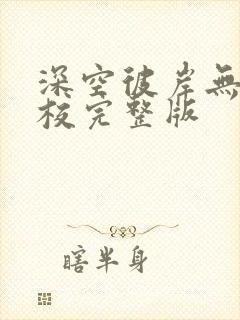 深空彼岸無
校完整版
瞎半身